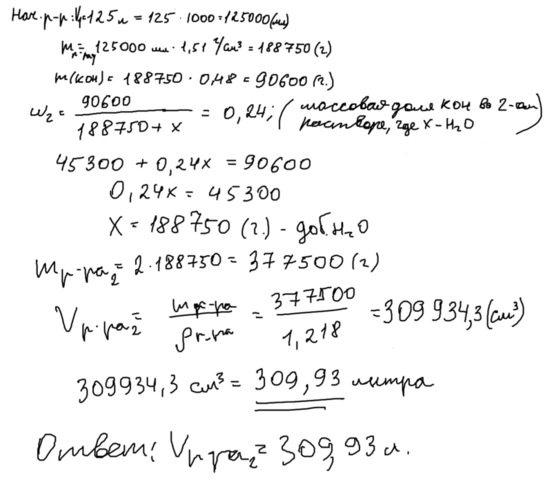 Нач. р-р: V₁=125л = 125 · 1000 = 125000 (мл)
125000 мл · 1,51 г/см³ = 188750 (г)
m(KOH) = 188750 · 0,48 = 90600 (г.)
ω₂ = 90600 / 188750 + x = 0,24; (массовая доля KOH во 2-ом растворе, где X - H₂O
45300 + 0,24x = 90600
0,24x = 45300
X = 188750 (г.) - доб. H₂O
m р-ра₂ = 2 · 188750 = 377500 (г)
V р-ра₂ = m р-ра / ρ р-ра = 377500 / 1,218 = 309 934,3 (см³)
309934,3 см³ = 309,93 литра
Ответ: V р-ра₂ = 309,93 л.